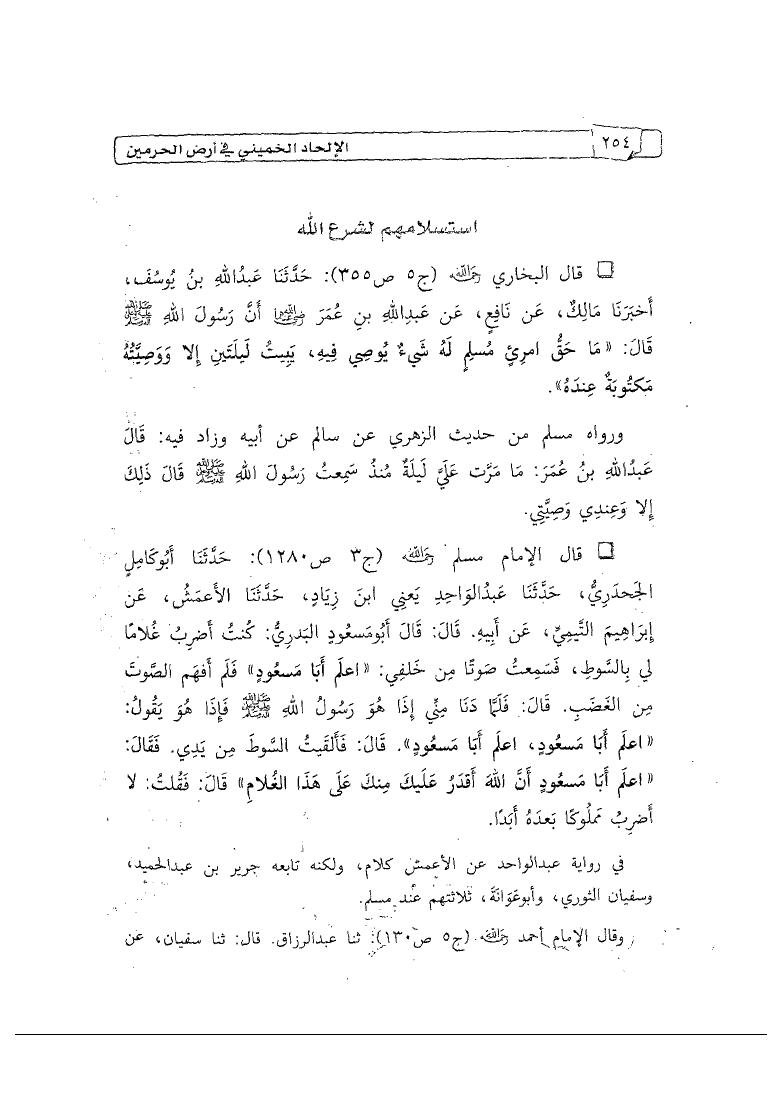 ٢٥٤
الإلحاد الخميني في أرض الحرمين
استسلامهم لشرع الله
❏ قال البخاري رحمه الله (ج٥ ص٣٥٥): حَدَّثَنَا عَبدُاللهِ بنُ يُوسُفَ،
أَخبَرَنَا مَالِكٌ، عَن نَافِعٍ، عَن عَبدِاللهِ بنِ عُمَرَ رضي الله عنهما أَنَّ رَسُولَ اللهِ ﷺ
قَالَ: «مَا حَقُّ امرِئٍ مُسلِمٍ لَهُ شَيءٌ يُوصِي فِيهِ، يَبِيتُ لَيلَتَينِ إِلا وَوَصِيَّتُهُ
مَكتُوبَةٌ عِندَهُ».
ورواه مسلم من حديث الزهري عن سالم عن أبيه وزاد فيه: قَالَ
عَبدُاللهِ بنُ عُمَرَ: مَا مَرَّت عَلَيَّ لَيلَةٌ مُنذُ سَمِعتُ رَسُولَ اللهِ ﷺ قَالَ ذَلِكَ
إِلا وَعِندِي وَصِيَّتِي.
❏ قال الإمام مسلم رحمه الله (ج٣ ص١٢٨٠): حَدَّثَنَا أَبُوكَامِلٍ
الجَحدَرِيُّ، حَدَّثَنَا عَبدُالوَاحِدِ يَعنِي ابنَ زِيَادٍ، حَدَّثَنَا الأَعمَشُ، عَن
إِبرَاهِيمَ التَّيمِيِّ، عَن أَبِيهِ. قَالَ: قَالَ أَبُومَسعُودٍ البَدرِيُّ: كُنتُ أَضرِبُ غُلامًا
لِي بِالسَّوطِ، فَسَمِعتُ صَوتًا مِن خَلفِي: «اعلَم أَبَا مَسعُودٍ» فَلَم أَفهَم الصَّوتَ
مِن الغَضَبِ. قَالَ: فَلَمَّا دَنَا مِنِّي إِذَا هُوَ رَسُولُ اللهِ ﷺ فَإِذَا هُوَ يَقُولُ:
«اعلَم أَبَا مَسعُودٍ، اعلَم أَبَا مَسعُودٍ». قَالَ: فَأَلقَيتُ السَّوطَ مِن يَدِي. فَقَالَ:
«اعلَم أَبَا مَسعُودٍ أَنَّ اللهَ أَقدَرُ عَلَيكَ مِنكَ عَلَى هَذَا الغُلامِ» قَالَ: فَقُلتُ: لا
أَضرِبُ مَملُوكًا بَعدَهُ أَبَدًا.
في رواية عبدالواحد عن الأعمش كلام، ولكنه تابعه جرير بن عبدالحميد،
وسفيان الثوري، وأبوعَوَانَةَ، ثلاثتهم عند مسلم.
وقال الإمام أحمد رحمه الله (ج٥ ص١٣٠): ثنا عبدالرزاق. قال: ثنا سفيان، عن